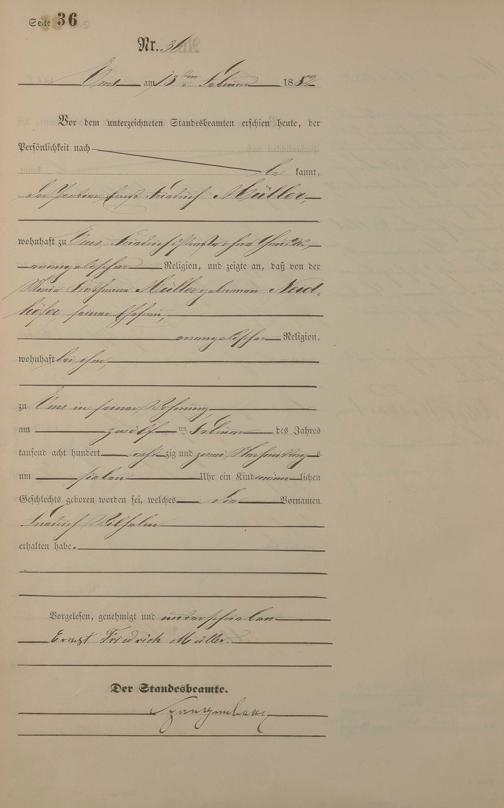 Seite 36
Nr. 36
Ems am 13ten Februar 1882
Vor dem unterzeichneten Standesbeamten erschien heute, der
Persönlichkeit nach
be kannt,
der Ernst Friedrich Müller,
wohnhaft zu Ems,
evangelischer Religion, und zeigte an, daß von der
Maria Müller geborenen Nord-
seiner Ehefrau,
evangelischer Religion,
wohnhaft bei ihm
zu Ems in seiner Wohnung
am zwölf ten Februar des Jahres
tausend acht hundert acht zig und zwei Nachmittags
um sieben Uhr ein Kind männ lichen
Geschlechts geboren worden sei, welches die Vornamen
Friedrich Wilhelm
erhalten habe.
Vorgelesen, genehmigt und unterschrieben
Ernst Friedrich Müller.
Der Standesbeamte.